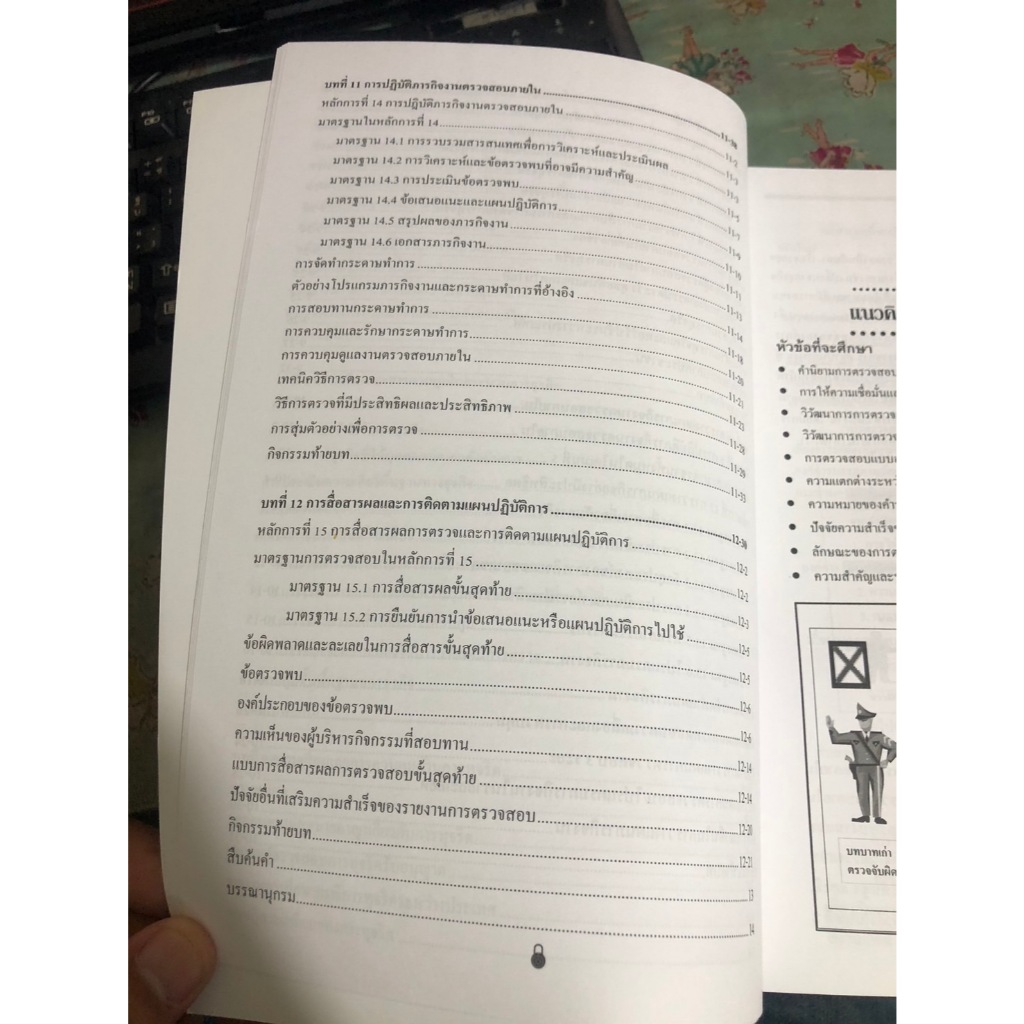 บทที่ 11 การปฏิบัติภารกิจงานตรวจสอบภายใน
หลักการที่ 14 การปฏิบัติภารกิจงานตรวจสอบภายใน 11-2
มาตรฐานในหลักการที่ 14 11-3
มาตรฐาน 14.1 การรวบรวมสารสนเทศเพื่อการวิเคราะห์และประเมินผล 11-3
มาตรฐาน 14.2 การวิเคราะห์และข้อตรวจพบที่อาจมีความสำคัญ 11-5
มาตรฐาน 14.3 การประเมินข้อตรวจพบ 11-7
มาตรฐาน 14.4 ข้อเสนอแนะและแผนปฏิบัติการ 11-9
มาตรฐาน 14.5 สรุปผลของภารกิจงาน 11-10
มาตรฐาน 14.6 เอกสารภารกิจงาน 11-11
การจัดทำกระดาษทำการ 11-13
ตัวอย่างโปรแกรมภารกิจงานและกระดาษทำการที่อ้างอิง 11-14
การสอบทานกระดาษทำการ 11-18
การควบคุมและรักษากระดาษทำการ 11-20
การควบคุมดูแลงานตรวจสอบภายใน 11-21
เทคนิควิธีการตรวจ 11-23
วิธีการตรวจที่มีประสิทธิผลและประสิทธิภาพ 11-28
การสุ่มตัวอย่างเพื่อการตรวจ 11-29
กิจกรรมท้ายบท 11-33
บทที่ 12 การสื่อสารผลและการติดตามแผนปฏิบัติการ 12-30
หลักการที่ 15 การสื่อสารผลการตรวจและการติดตามแผนปฏิบัติการ 12-2
มาตรฐานการตรวจสอบในหลักการที่ 15 12-2
มาตรฐาน 15.1 การสื่อสารผลขั้นสุดท้าย 12-3
มาตรฐาน 15.2 การยืนยันการนำข้อเสนอแนะหรือแผนปฏิบัติการไปใช้ 12-5
ข้อผิดพลาดและละเลยในการสื่อสารขั้นสุดท้าย 12-5
ข้อตรวจพบ 12-6
องค์ประกอบของข้อตรวจพบ 12-6
ความเห็นของผู้บริหารกิจกรรมที่สอบทาน 12-14
แบบการสื่อสารผลการตรวจสอบขั้นสุดท้าย 12-14
ปัจจัยอื่นที่เสริมความสำเร็จของรายงานการตรวจสอบ 12-20
กิจกรรมท้ายบท 12-21
สืบค้นคำ 13
บรรณานุกรม 14
แนวคิ
หัวข้อที่จะศึกษา
• คำนิยามการตรวจสอบ
• การให้ความเชื่อมั่นแ
• วิวัฒนาการการตรวจ
• วิวัฒนาการการตรวจ
• การตรวจสอบแบบ
• ความแตกต่างระหว
• ความหมายของคำ
• ปัจจัยความสำเร็จข
• ลักษณะของการต
• ความสำคัญและ
บทบาทเก่า
ตรวจจับผิด